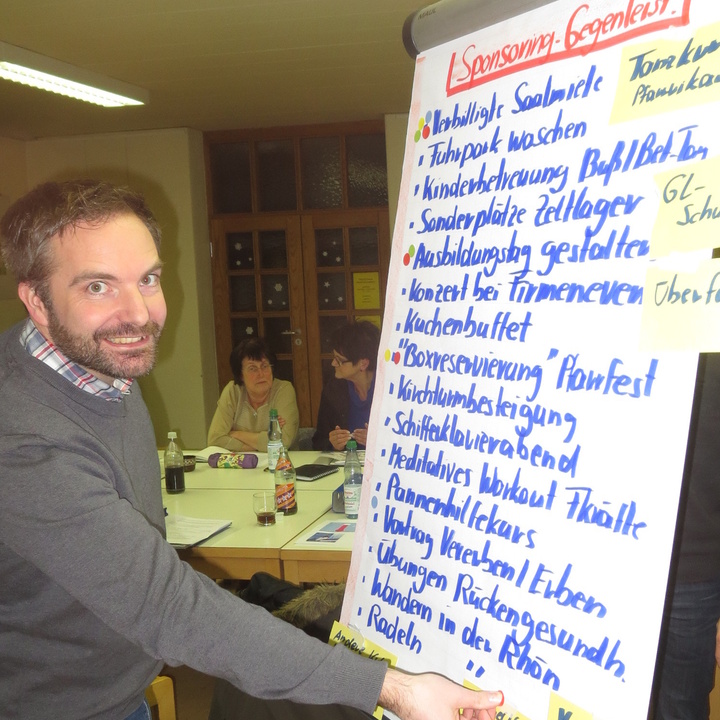 Sponsoring-Gegenleist.
Verbilligte Saalmiete
Fuhrpark waschen
Kinderbetreuung Buß/Bet-Tag
Sonderplätze Zeltlager
Ausbildungstag gestalten
Konzert bei Firmenevent
Kuchenbuffet
"Boxreservierung" Pfarrfest
Kirchturmbesteigung
Schifferklavierabend
Meditatives Workout Fkräfte
Pannenhilfekurs
Vortrag Vererben/Erben
Übungen Rückengesundh.
Wandern in der Rhön
Radeln " "
GL-
Schu
Überf